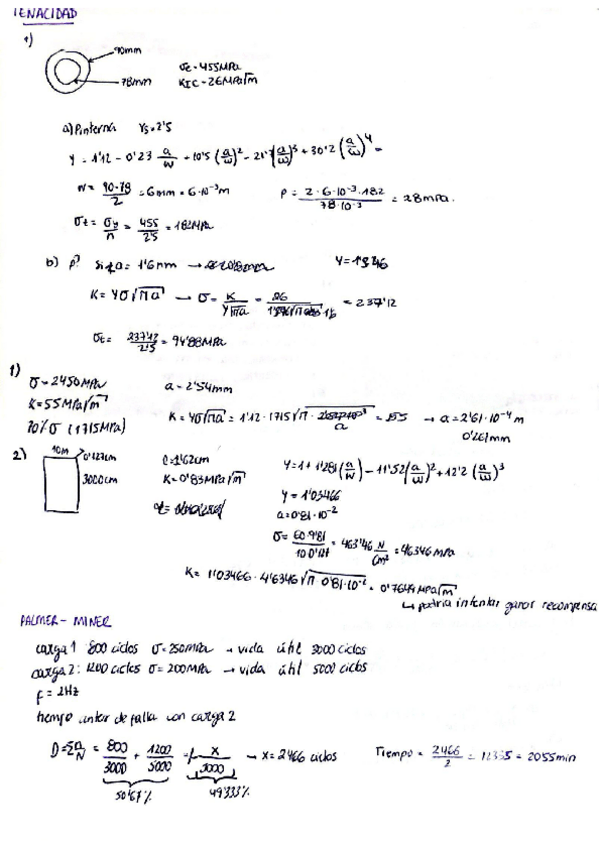 TENACIDAD
1)
90mm
78mm
σc = 455MPa
KIC = 26MPa√m
a) Pinterna γs = 2'5
Y = 1'12 - 0'23 a/w + 10'5 (a/w)² - 21'7 (a/w)³ + 30'2 (a/w)⁴ =
w = (90-78)/2 = 6mm = 6·10⁻³m
P = (2·6·10⁻³·182)/(78·10⁻³) = 28mpa.
σt = σy/n = 455/25 = 182MPa
b) P? si a = 1'6mm →
K = Yσ√πa → σ = K/(Y√πa) = = 237'12
σt = 237'12/2'5 = 94'88MPa
1)
σ = 2450MPa a = 2'54mm
K = 55MPa√m
70% σ (1715MPa)
K = Yσ√πa = 1'12·1715√π· a = 55 → a = 2'61·10⁻⁴m
0'261mm
2)
10cm
0'127cm
3000cm
l = 1'62cm
K = 0'83MPa√m
Y = 1 + 1'281(a/w) - 11'52(a/w)² + 12'2(a/w)³
Y = 1'03466
a = 0'81·10⁻²
σ = 60·9'81/10·0'127 = 463'46 N/cm² = 4'6346MPa
K = 1'03466·4'6346√π·0'81·10⁻² = 0'7649MPa√m
↳ podría intentar ganar recompensa
PALMER-MINER
carga 1 800 ciclos σ = 250MPa → vida útil 3000 ciclos
carga 2: 1200 ciclos σ = 200MPa → vida útil 5000 ciclos
f = 2Hz
tiempo antes de falla con carga 2
D = Σ n/N = 800/3000 + 1200/5000 = 1 - x/5000 → x = 2466 ciclos
Tiempo = 2466/2 = = 2055min
50'67% 49'333%